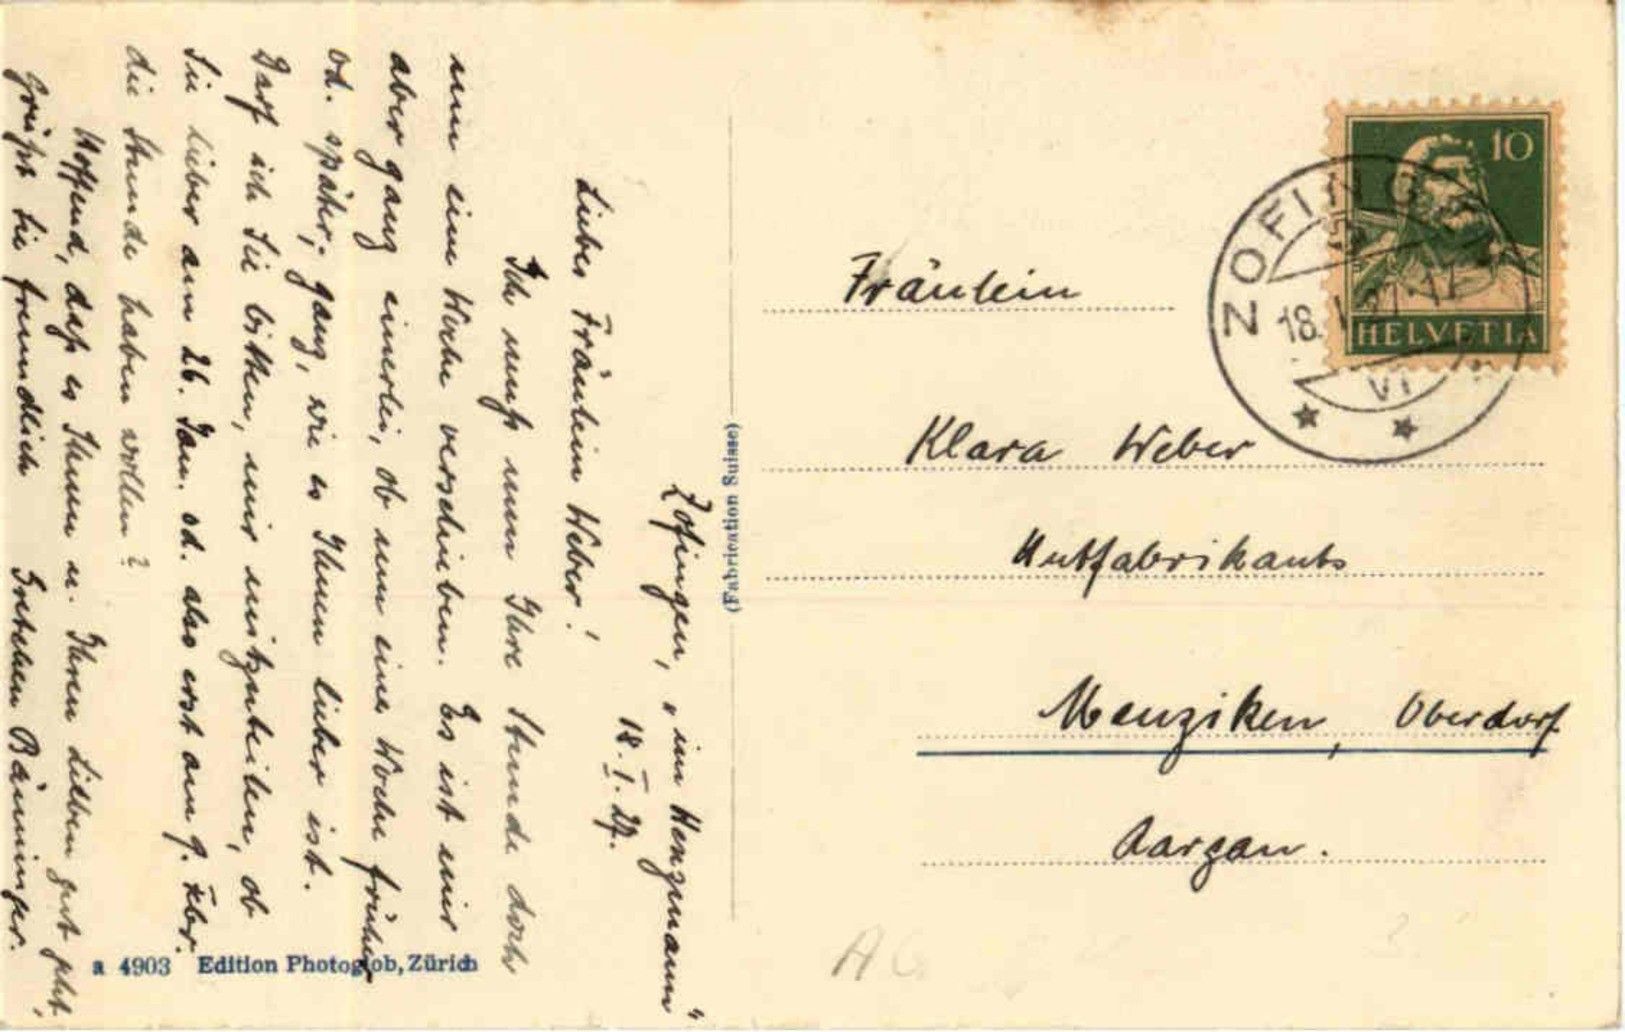 Zofingen, „im Henzmann"
18. I. 27.
Liebes Fräulein Weber!
Ich muss nun Ihre Stunde doch
um eine Woche verschieben. Es ist mir
aber ganz einerlei, ob um eine Woche früher
od. später; ganz, wie es Ihnen lieber ist.
Darf ich Sie bitten, mir mitzuteilen, ob
Sie lieber am 26. Jan. od. also erst am 9. Febr.
die Stunde haben wollen?
Hoffend, dass es Ihnen u. Ihren Lieben gut geht,
grüsst Sie freundlich Gretchen Bänninger.
a 4903 Edition Photoglob, Zürich
(Fabrication Suisse)
10
HELVETIA
ZOFINGEN
18. I. 27. 17
VI
Fräulein
Klara Weber
Hutfabrikants
Menziken, Oberdorf
Aargau.